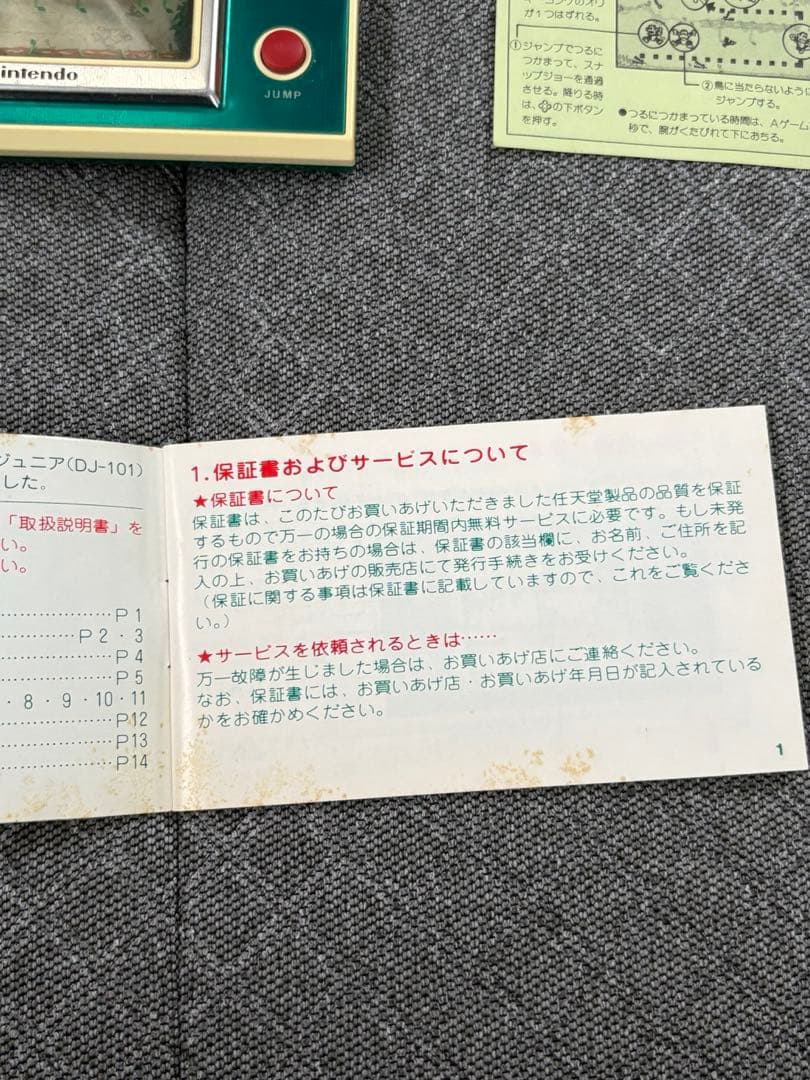 Nintendo
JUMP
が1つはずれる。
①ジャンプでつるに
つかまって、スナ
ップジョーを通過
させる。降りる時
は、の下ボタン
を押す。
②鳥に当たらないように
ジャンプする。
●つるにつかまっている時間は、Aゲーム
秒で、腕がくたびれて下におちる。
ジュニア(DJ-101)
した。
「取扱説明書」を
い。
い。
P 1
P 2・3
P 4
P 5
・8・9・10・11
P12
P13
P14
1.保証書およびサービスについて
★保証書について
保証書は、このたびお買いあげいただきました任天堂製品の品質を保証
するもので万一の場合の保証期間内無料サービスに必要です。もし未発
行の保証書をお持ちの場合は、保証書の該当欄に、お名前、ご住所を記
入の上、お買いあげの販売店にて発行手続きをお受けください。
(保証に関する事項は保証書に記載していますので、これをご覧くださ
い。)
★サービスを依頼されるときは……
万一故障が生じました場合は、お買いあげ店にご連絡ください。
なお、保証書には、お買いあげ店・お買いあげ年月日が記入されている
かをお確かめください。
1